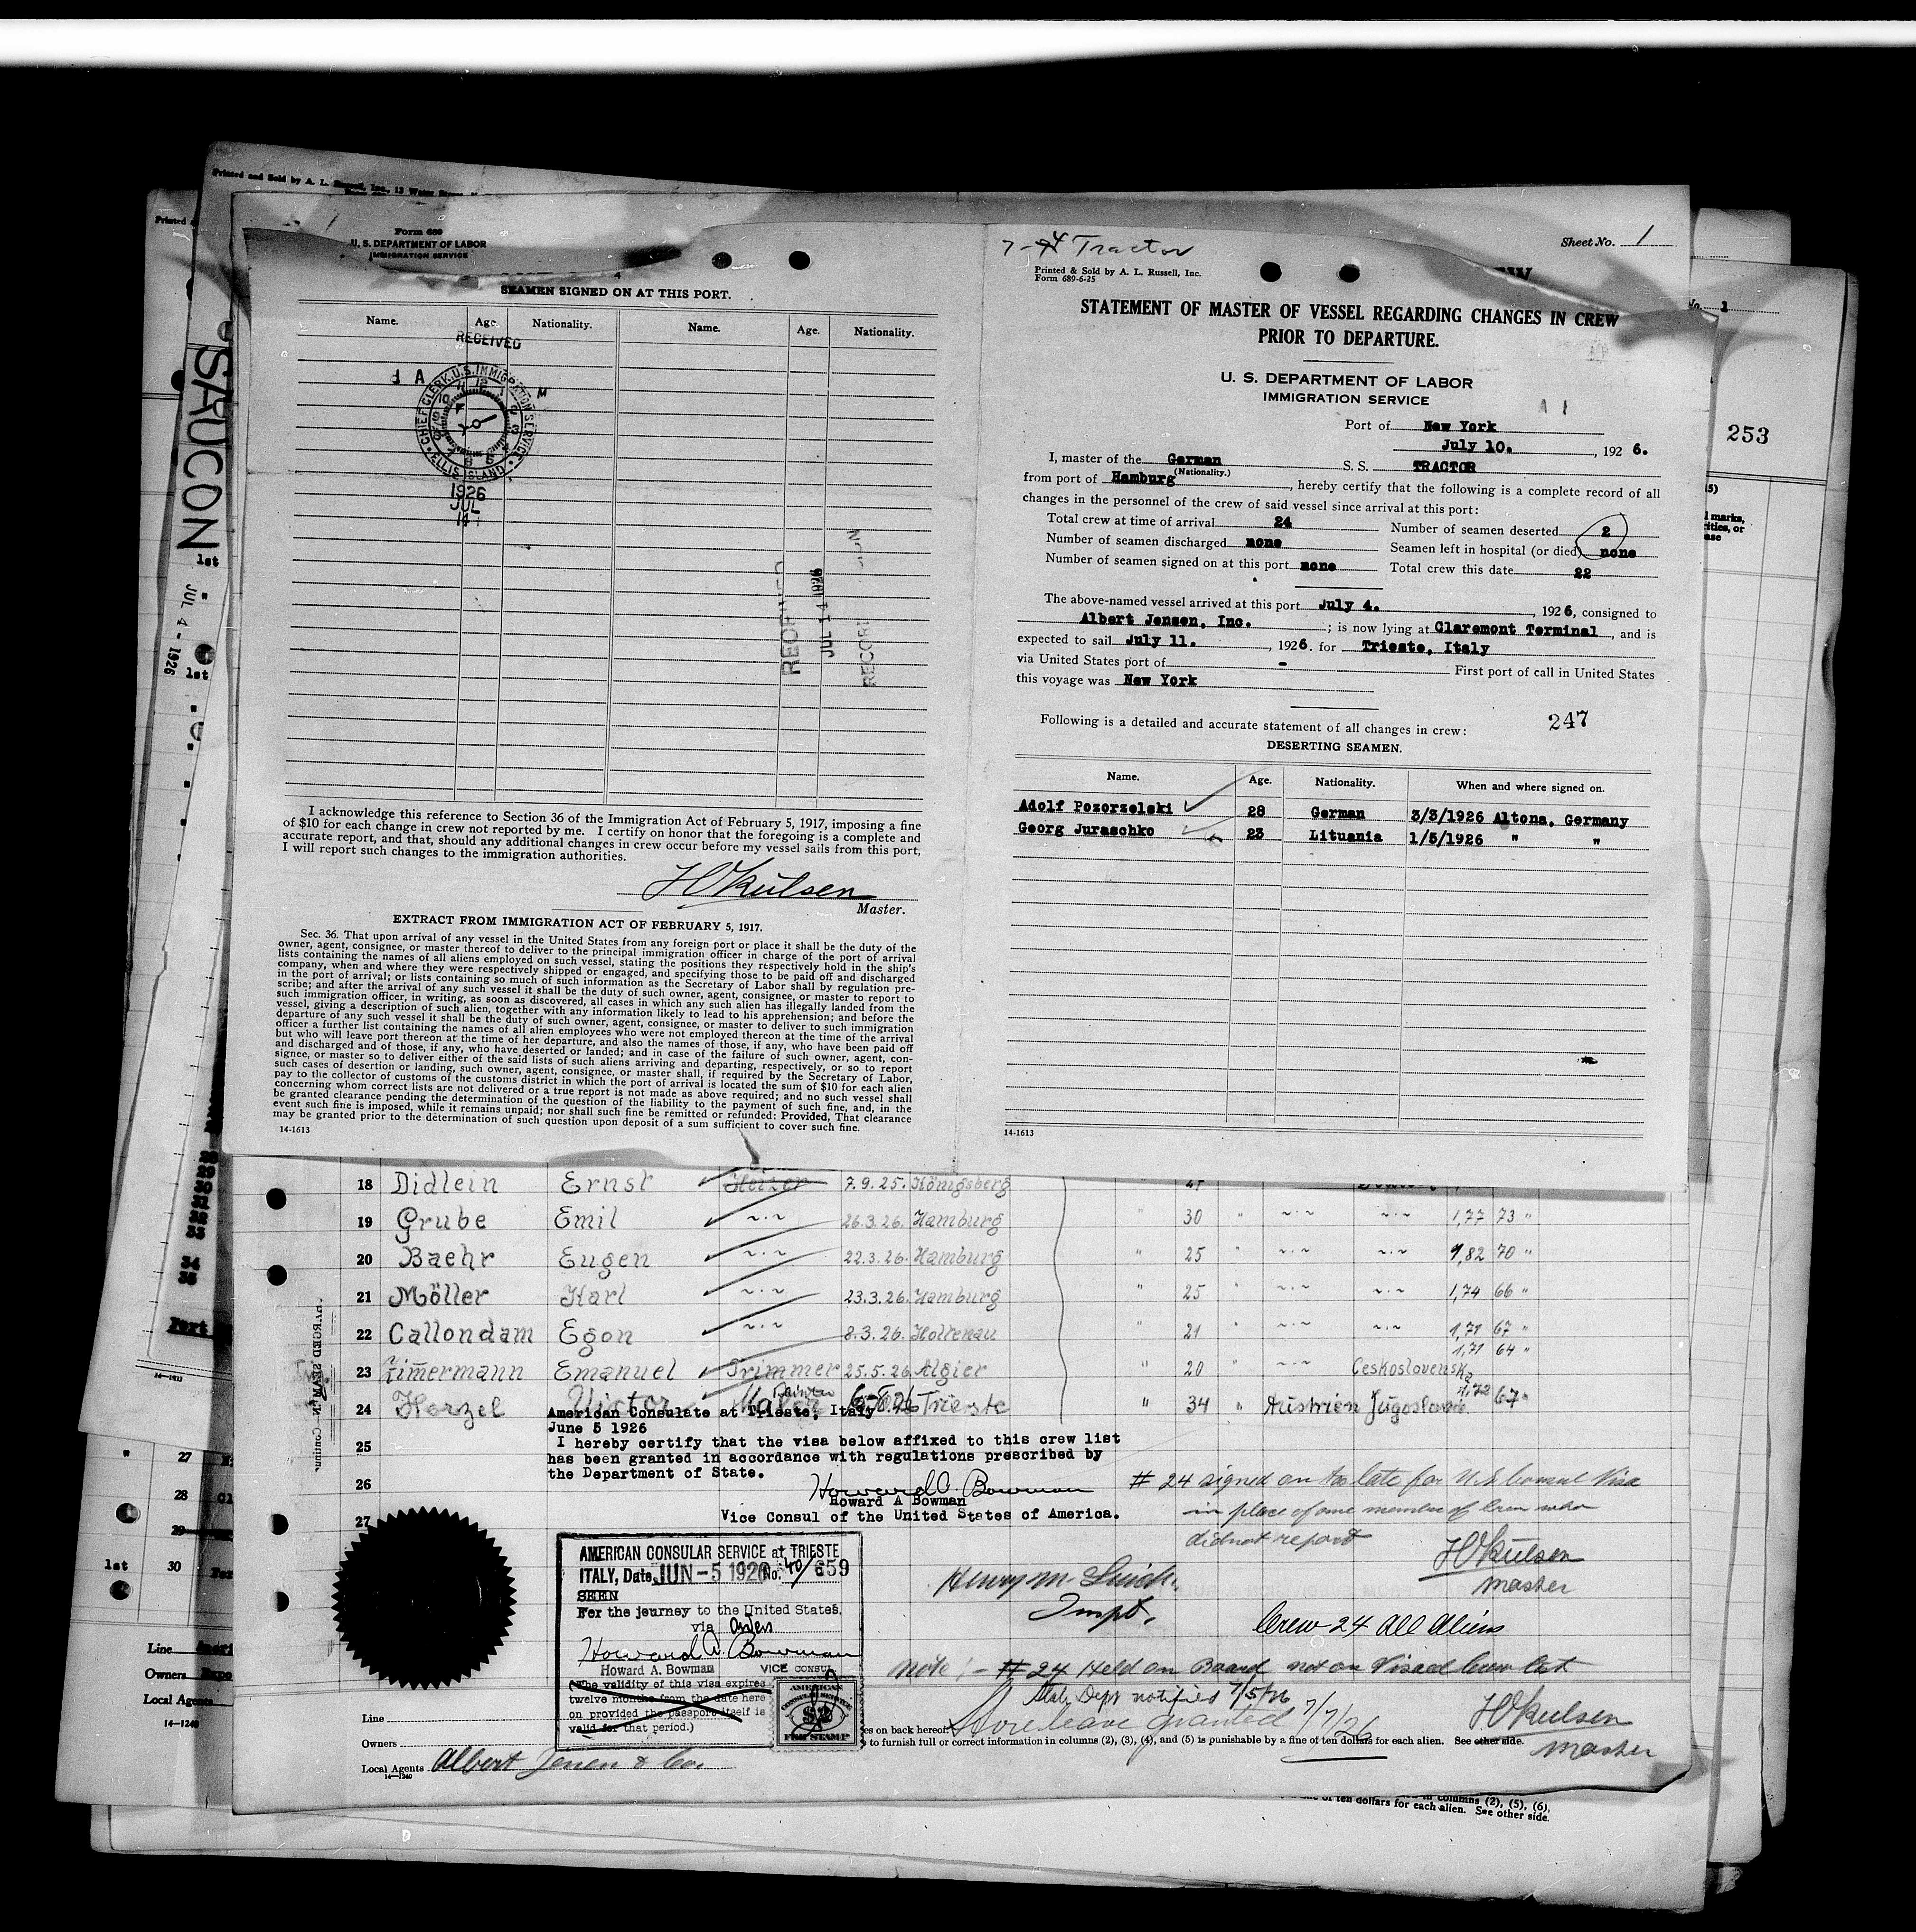 Printed and Sold by A. L. Russell, Inc., 13 Water
Printed
Form 689
U. S. DEPARTMENT OF LABOR
IMMIGRATION SERVICE
SEAMEN SIGNED ON AT THIS PORT.
Name. Age. Nationality. Name. Age. Nationality.
RECEIVED
CHIEF CLERK, U.S. IMMIGRATION SERVICE
ELLIS ISLAND
1926
JUL
14
RECEIVED
JUL 14 1926
I acknowledge this reference to Section 36 of the Immigration Act of February 5, 1917, imposing a fine
of $10 for each change in crew not reported by me. I certify on honor that the foregoing is a complete and
accurate report, and that, should any additional changes in crew occur before my vessel sails from this port,
I will report such changes to the immigration authorities.
HOKülsen
Master.
EXTRACT FROM IMMIGRATION ACT OF FEBRUARY 5, 1917.
Sec. 36. That upon arrival of any vessel in the United States from any foreign port or place it shall be the duty of the
owner, agent, consignee, or master thereof to deliver to the principal immigration officer in charge of the port of arrival
lists containing the names of all aliens employed on such vessel, stating the positions they respectively hold in the ship's
company, when and where they were respectively shipped or engaged, and specifying those to be paid off and discharged
in the port of arrival; or lists containing so much of such information as the Secretary of Labor shall by regulation pre-
scribe; and after the arrival of any such vessel it shall be the duty of such owner, agent, consignee, or master to report to
such immigration officer, in writing, as soon as discovered, all cases in which any such alien has illegally landed from the
vessel, giving a description of such alien, together with any information likely to lead to his apprehension; and before the
departure of any such vessel it shall be the duty of such owner, agent, consignee, or master to deliver to such immigration
officer a further list containing the names of all alien employees who were not employed thereon at the time of the arrival
but who will leave port thereon at the time of her departure, and also the names of those, if any, who have been paid off
and discharged and of those, if any, who have deserted or landed; and in case of the failure of such owner, agent, con-
signee, or master so to deliver either of the said lists of such aliens arriving and departing, respectively, or so to report
such cases of desertion or landing, such owner, agent, consignee, or master shall, if required by the Secretary of Labor,
pay to the collector of customs of the customs district in which the port of arrival is located the sum of $10 for each alien
concerning whom correct lists are not delivered or a true report is not made as above required; and no such vessel shall
be granted clearance pending the determination of the question of the liability to the payment of such fine, and, in the
event such fine is imposed, while it remains unpaid; nor shall such fine be remitted or refunded: Provided, That clearance
may be granted prior to the determination of such question upon deposit of a sum sufficient to cover such fine.
14-1613
7-4 Tractor
Sheet No. 1
Printed & Sold by A. L. Russell, Inc.
Form 689-6-25
STATEMENT OF MASTER OF VESSEL REGARDING CHANGES IN CREW
PRIOR TO DEPARTURE.
U. S. DEPARTMENT OF LABOR
IMMIGRATION SERVICE
Port of New York
July 10. , 192 6.
I, master of the German S. S. TRACTOR
(Nationality.)
from port of Hamburg , hereby certify that the following is a complete record of all
changes in the personnel of the crew of said vessel since arrival at this port:
Total crew at time of arrival 24 Number of seamen deserted 2
Number of seamen discharged none Seamen left in hospital (or died) none
Number of seamen signed on at this port none Total crew this date 22
The above-named vessel arrived at this port July 4. , 1926, consigned to
Albert Jensen, Inc. ; is now lying at Claremont Terminal , and is
expected to sail July 11. , 1926. for Trieste, Italy
via United States port of - First port of call in United States
this voyage was New York
Following is a detailed and accurate statement of all changes in crew:
247
DESERTING SEAMEN.
Name. Age. Nationality. When and where signed on.
Adolf Pozorzelski 28 German 3/3/1926 Altona, Germany
Georg Juraschko 23 Lituania 1/5/1926 " "
14-1613
253
SAUCON
JUL 4 - 1926
1st
1st
18 Didlein Ernst Heizer 7.9.25. Königsberg
19 Grube Emil 26.3.26. Hamburg " 30 " 1,77 73 "
20 Baehr Eugen 22.3.26. Hamburg " 25 " 1,82 70 "
21 Möller Karl 23.3.26. Hamburg " 25 " 1,74 66 "
22 Callondam Egon 8.3.26. Holtenau " 21 " 1,71 67 "
23 Zimermann Emanuel Trimmer 25.5.26. Algier " 20 " Ceskoslovensk. 1,71 64 "
24 Herzel Victor Trieste " 34 " Austrien Jugoslav 1,72 67 "
25
26
27
American Consulate at Trieste, Italy
June 5 1926
I hereby certify that the visa below affixed to this crew list
has been granted in accordance with regulations prescribed by
the Department of State.
Howard A. Bowman
Howard A Bowman
Vice Consul of the United States of America.
# 24 signed on too late for U.S. Consul Visa
in place of one member of Crew who
did not report
HOKülsen
Master
Inspt.
Crew 24 all aliens
Note:- #24 Held on Board not on Visaed Crew list
State Dept notified 7/5/26
Shore leave granted 7/7/26
HOKülsen
Master
AMERICAN CONSULAR SERVICE at TRIESTE
ITALY, Date JUN -5 1926 No.
SEEN
For the journey to the United States,
via
Howard A. Bowman
Howard A. Bowman VICE CONSUL
(The validity of this visa expires
twelve months from the date here
on provided the passport itself is
valid for that period.)
AMERICAN
CONSULAR SERVICE
$2
FEE STAMP
Line
Owners
Local Agents Albert Jensen & Co.
14-1240
es on back hereof.
to furnish full or correct information in columns (2), (3), (4), and (5) is punishable by a fine of ten dollars for each alien. See other side.
27
28
29
1st 30
Line
Owners
Local Agents
14-1240
34
35
Port
columns (2), (5), (6),
of ten dollars for each alien. See other side.